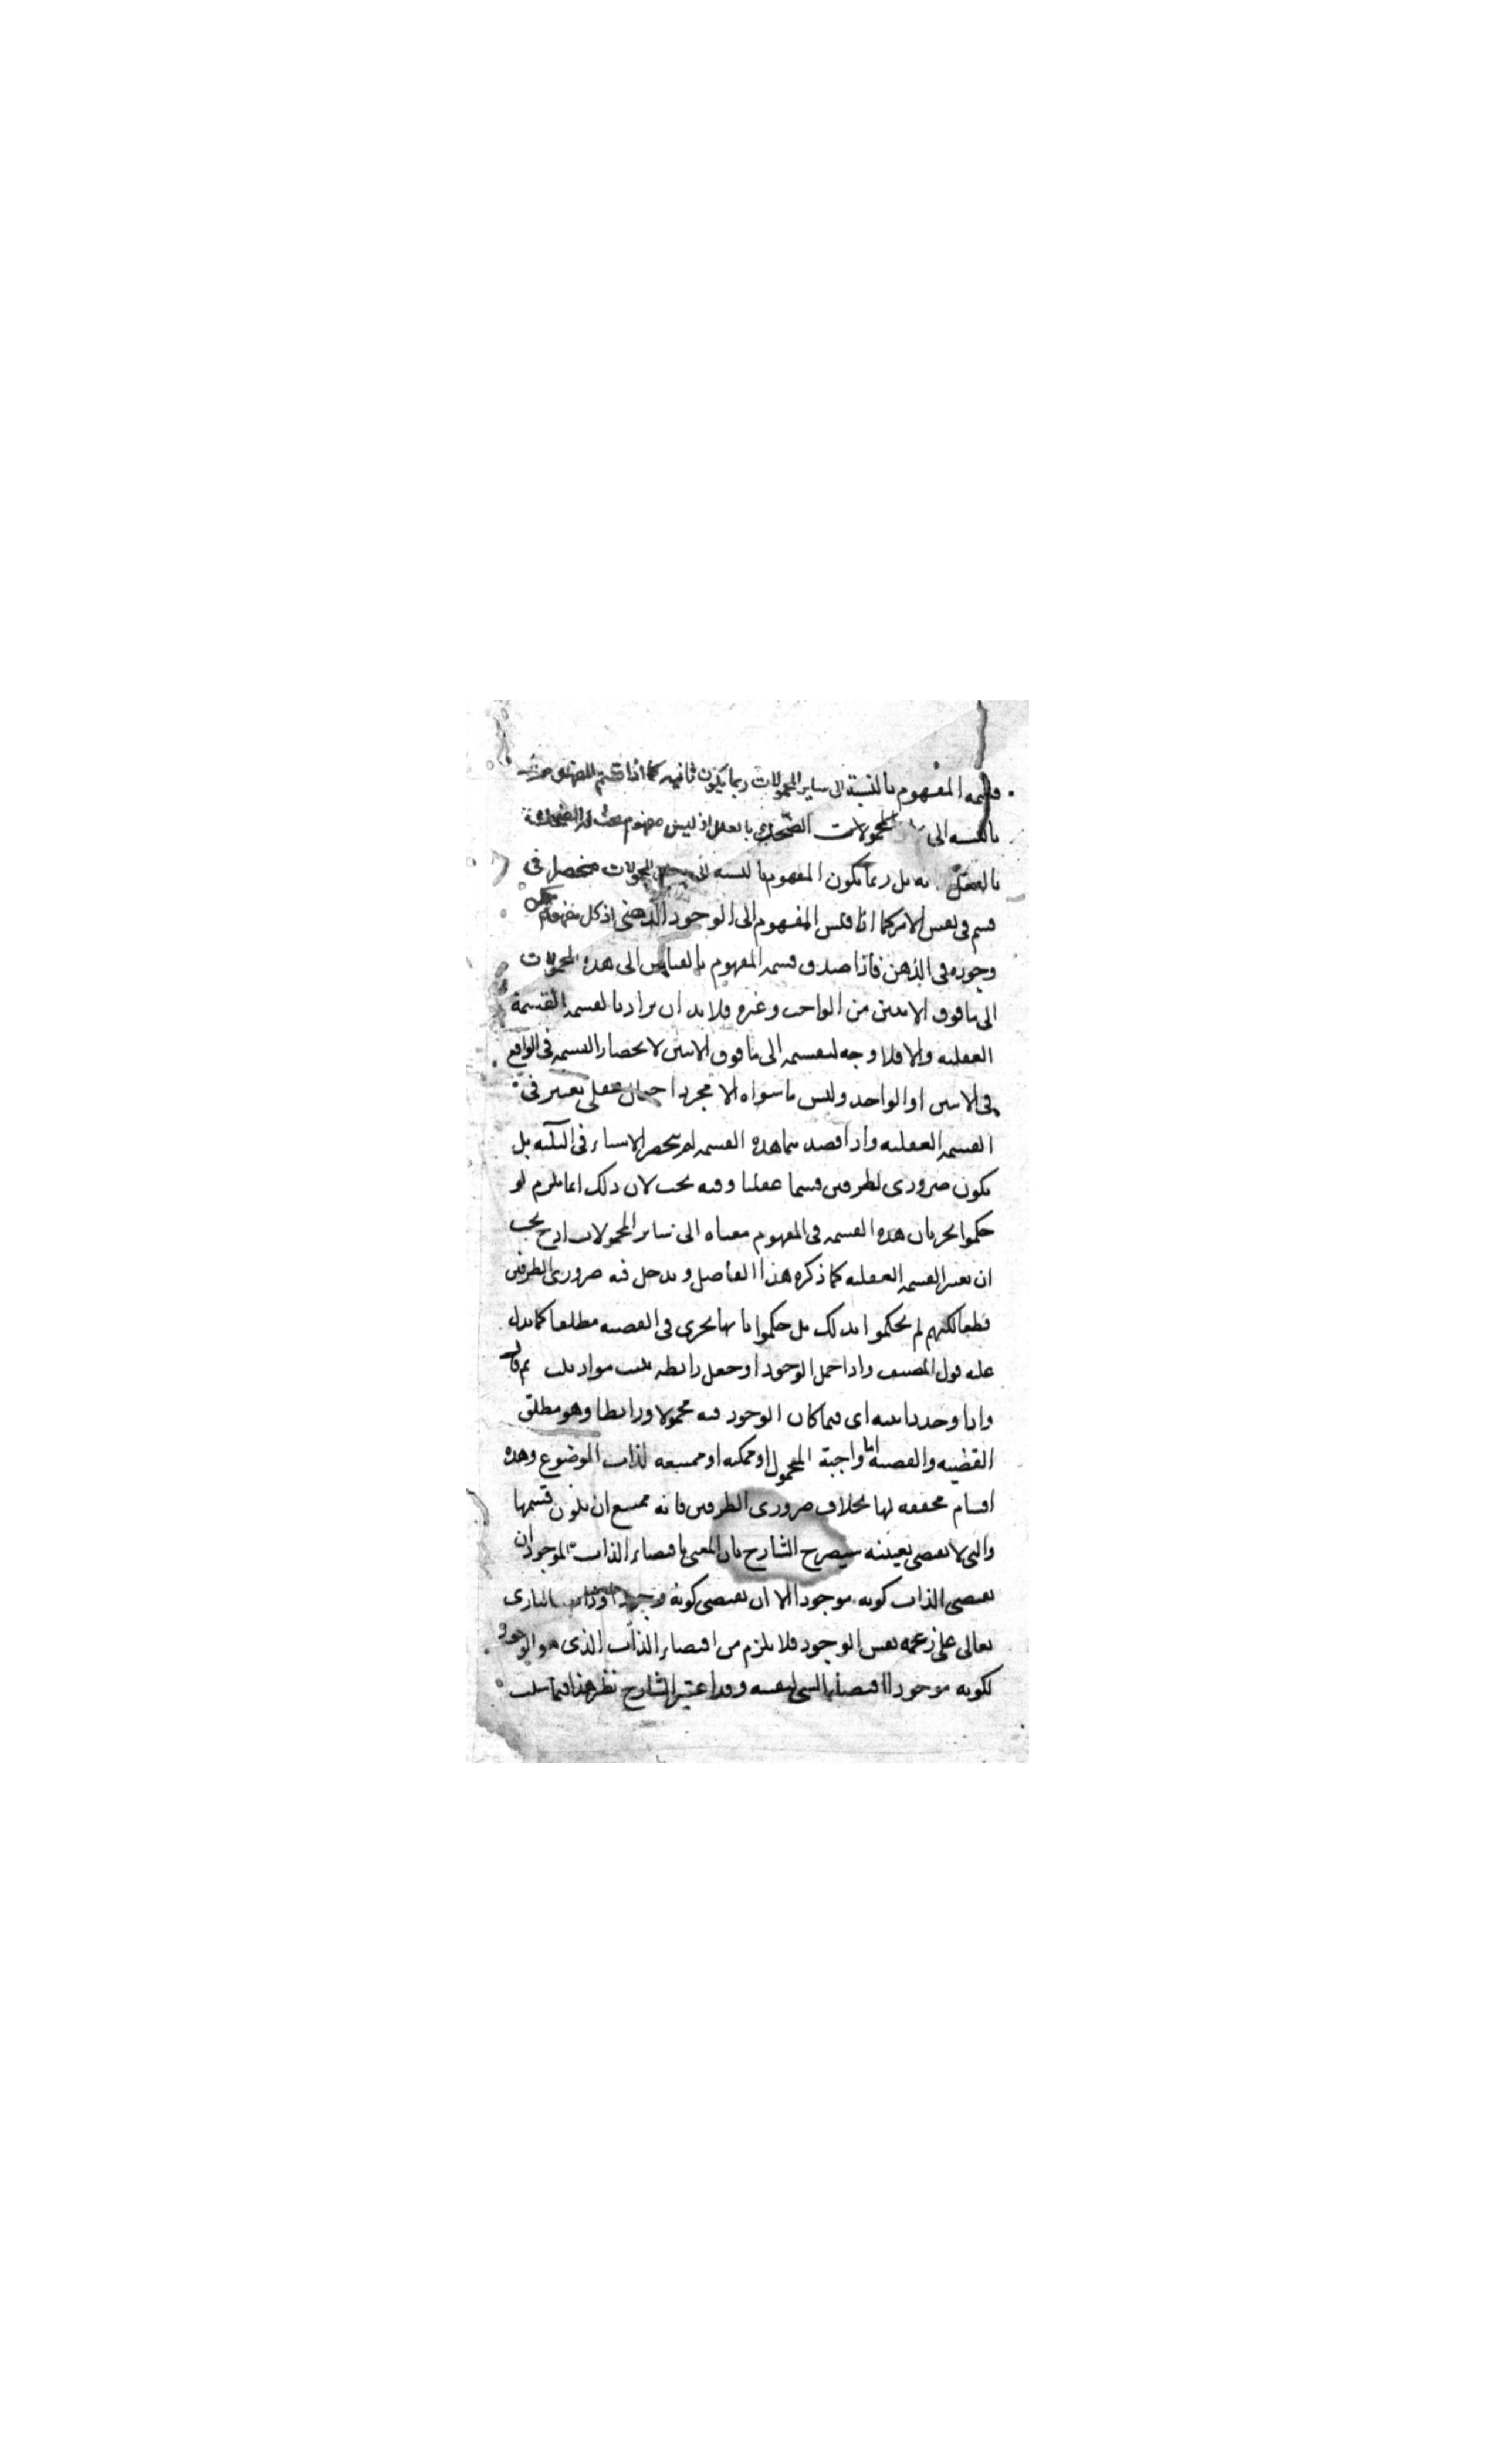 قسمه المفهوم بالنسبة الى ساير المحمولات ربما يكون ثانيه كما اذا قسم المفهوم
بالنسبه الى المحمولات الضحك بالعقل اذ ليس مفهوم
بالعقل به بل ربما يكون المفهوم بالنسبه الى بعض المحمولات منحصل فى
قسم فى نفس الامر كما اذا قلس المفهوم الى الوجود الذهنى اذ كل مفهوم يمكن
وجوده فى الذهن فاذا صدق قسمه المفهوم بالقياس الى هذه المحمولات
الى ما فوق الاثنين من الواجب وغيره فلابد ان يراد بالقسمه القسمة
العقليه والا فلا وجه لتقسيمه الى ما فوق الاثنين لانحصار القسمه فى الواقع
فى الاثنين او الواحد وليس ما سواه الا مجرد احتمال عقلى يعتبر فى
القسمه العقليه واذا قصد بما هذه القسمه لم ينحصر الاشياء فى الثلثه بل
يكون ضرورى الطرفين قسما عقليا وفيه بحث لان ذلك انما يلزم لو
حكموا بجريان هذه القسمه فى المفهوم مقيسا الى ساير المحمولات اذ ح يجب
ان يعتبر القسمه العقليه كما ذكره هذا الفاضل ويدخل فيه ضرورى الطرفين
قطعا لكنهم لم يحكموا بذلك بل حكموا بانها يجرى فى القضيه مطلقا كما يدل
عليه قول المصنف واذا حمل الوجود او جعل رابطه يثبت مواد ثلث ثم قال
واذا وجد ثابته اى فيما كان الوجود فيه محمولا ورابطا وهو مطلق
القضيه والقضيه اما واجبة المحمول او ممكنه او ممتنعه لذات الموضوع وهذه
اقسام محققه لها بخلاف ضرورى الطرفين فانه ممتنع ان يكون قسمها
والتى لا يقتضى بعينه سيصرح الشارح بان المعنى باقتضاء الذات الموجود ان
يقتضى الذات كونه موجودا لا ان يقتضى كونه وجودا وذات البارى
تعالى على زعمه نفس الوجود فلا يلزم من اقتضاء الذات الذى هو الوجود
لكونه موجودا اقتضاء الشى لنفسه وقد اعتبر الشارح نظر هذا فيما سلب